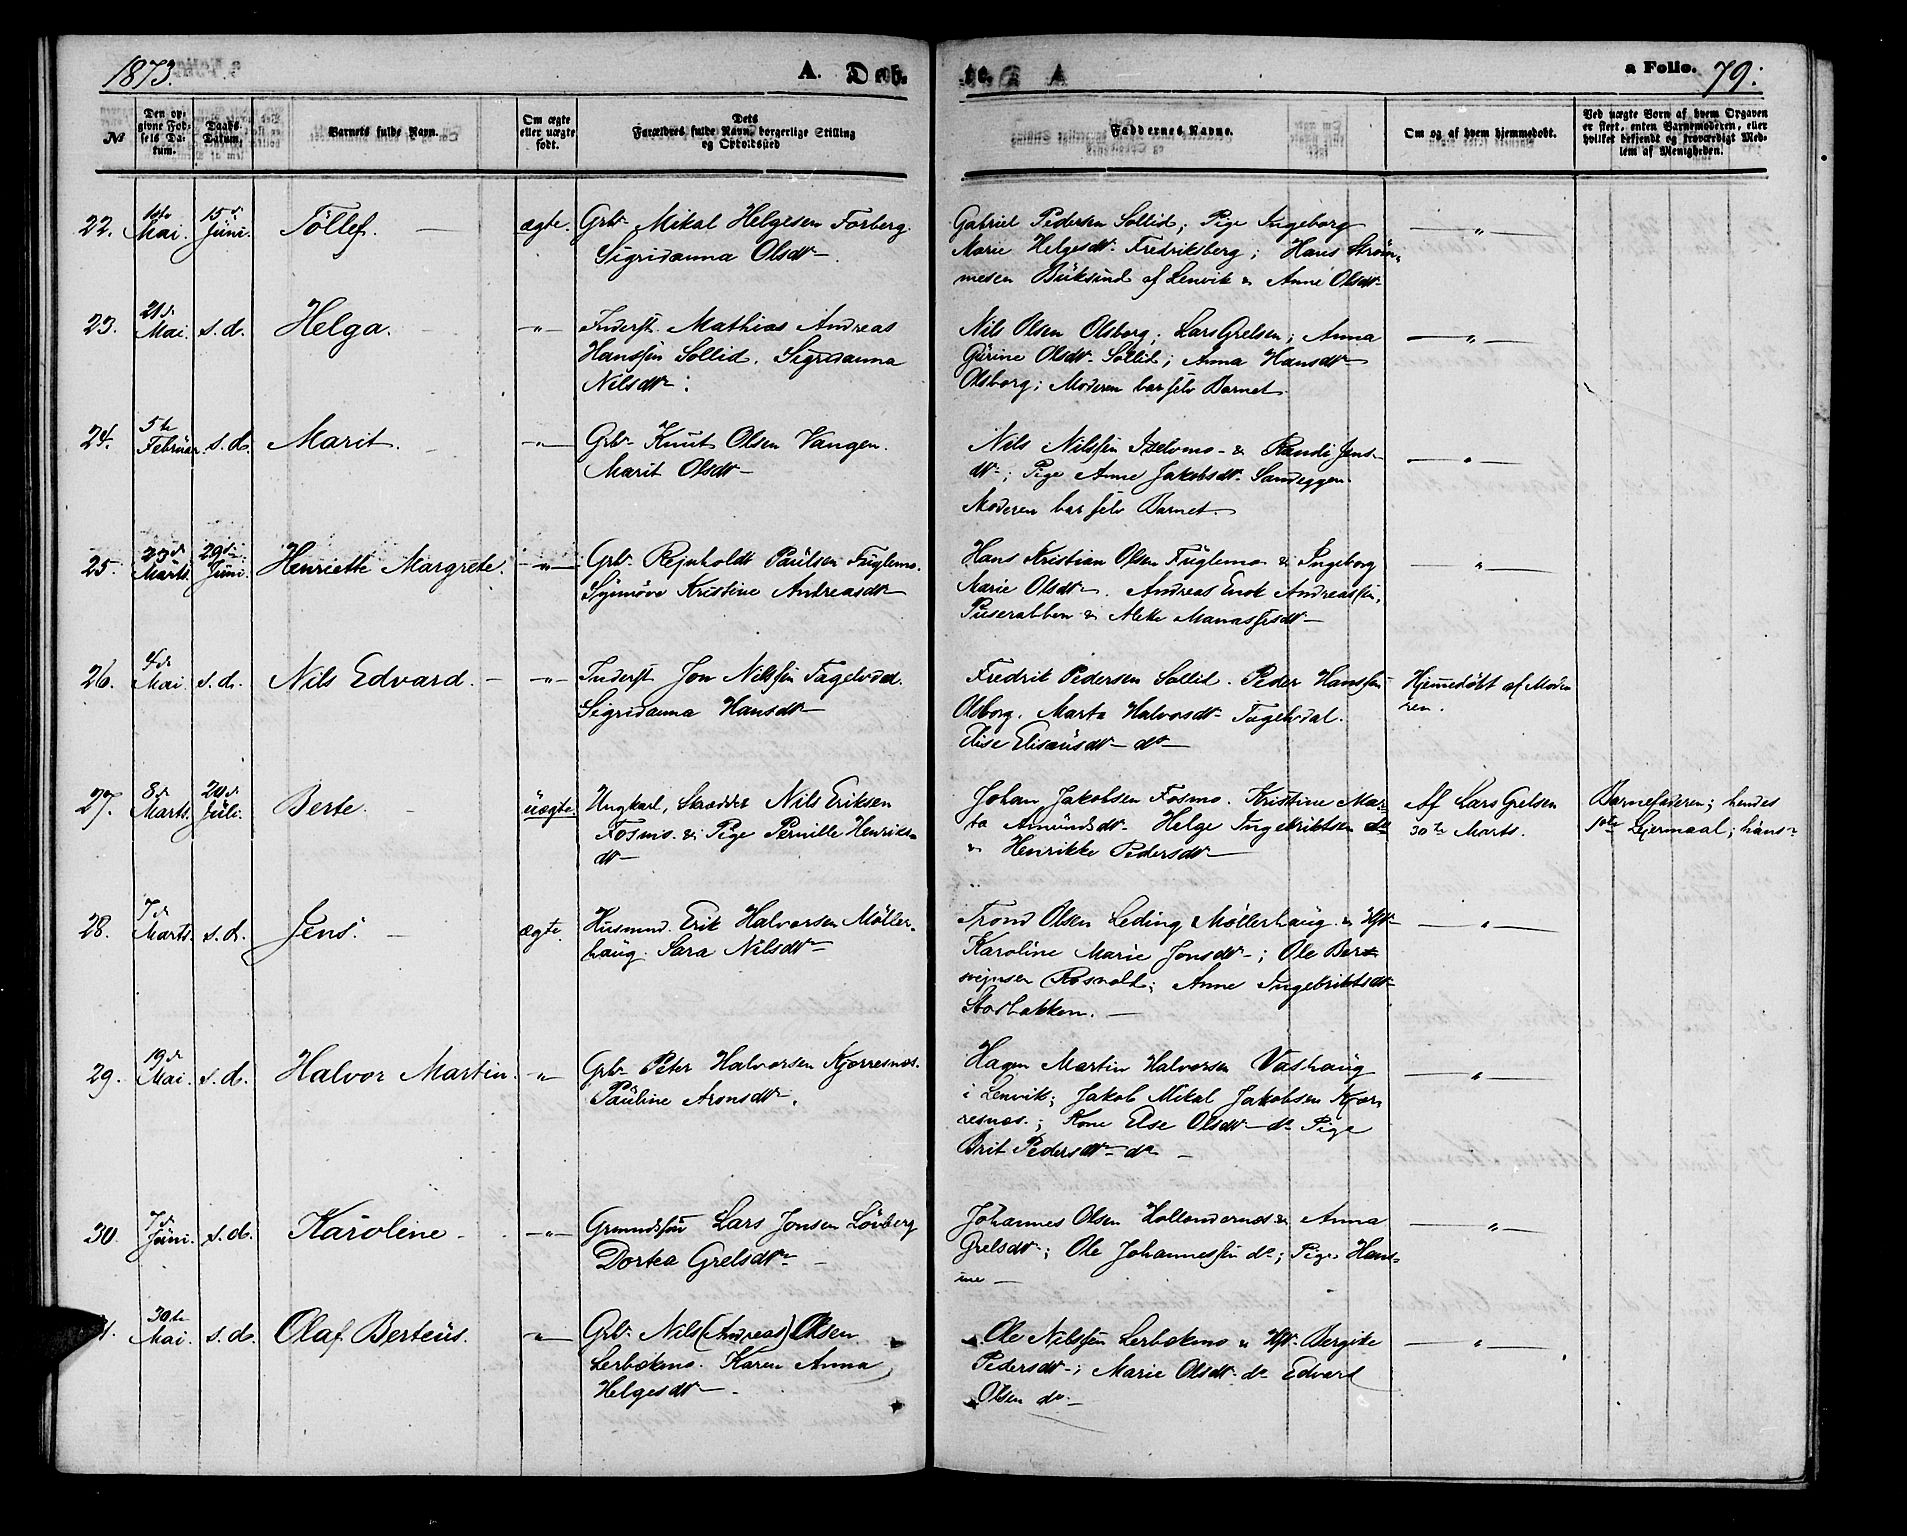 1873.
A. Døb.
a Folio. 79.
No
Den opgivne Fødsels Datum.
Daabs-Datum.
Barnets fulde Navn.
Om ægte eller uægte født.
Dets Forældres fulde Navn, borgerlige Stilling og Opholdssted
Faddernes Navne.
Om og af hvem hjemmedøbt.
Ved uægte Børn af hvem Opgaven er skeet, enten Barnemoderen, eller hvilket bekjendt og troværdigt Medlem af Menigheden.
22. Mai. 15de Juni. Töllef. — ægte.
Grbr Mikal Helgesen Forberg.
Sigridanna Olsdtr —
Gabriel Pedersen Sollid; Pige Ingeborg
Marie Helgesdtr Fredriksberg; Hans Strøm-
mesen Büksund af Lenvik & Anne Olsdtr
— " —
23. 21d. Mai. s.d. Helga. — " —
Inderst. Mathias Andreas
Hanssen Sollid. Sigridanna
Nilsdtr.
Nils Olsen Olsborg; Lars Grelsen; Anna
Gürine Olsdtr Sollid; Anna Hansdtr
Olsborg; Moderen bar selv Barnet.
— " —
24. 5te Februar s.d. Marit. — " —
Grbr Knut Olsen Vangen.
Marit Olsdtr —
Nils Nilssen Iselvmo & Randi Jens-
dtr; Pige Anne Jakobsdtr Sandeggen.
Moderen bar selv Barnet.
— " —
25. 23d Marts. 29de Juni. Henriette Margrete. — " —
Grbr Rejnholdt Paulsen Fuglemo.
Synnöve Kristine Andreasdtr
Hans Kristian Olsen Fuglemo & Ingeborg
Marie Olsdtr. Andreas Enok Andreassen,
& Aleke Manassesdtr —
— " —
26. 4d. Mai. s.d. Nils Edvard. — " —
Inderst Jon Nilssen Fagelvdal.
Sigridanna Hansdtr
Fredrik Pedersen Sollid. Peder Hanssen
Olsborg. Marta Halvorsdtr Fagelvdal.
Elise Elisæusdtr — do —
Hjemmedøbt af Mode-
ren.
27. 8d. Marts. 20d. Juli. Berte. uægte.
Ungkarl, Skrædder Nils Eriksen
Fosmo. & Pige Pernille Henriks-
dtr
Johan Jakobsen Fosmo. Kristine Mar-
ta Amundsdtr Helge Ingebriktsen do
& Henrikke Pedersdtr
Af Lars Grelsen
30te Marts.
Barnefaderen; hendes
1ste Leiermaal; hans
28. 7d. Marts. s.d. Jens. — ægte.
Husmnd. Erik Halvorsen Møller-
haug. Sara Nilsdtr
Trond Olsen Leding Møllerhaug &
Karoline Marie Jonsdtr; Ole Ber-
svejnsen Rosvolt; Anne Ingebriktsdtr
Storbakken. —
— " —
29. 19d. Mai. s.d. Halvor Martin. "
Grbr Peter Halvorsen Kjærresnæs.
Pauline Aronsdtr.
Hagen Martin Halvorsen Vashaug
i Lenvik; Jakob Mikal Jakobsen Kjær-
resnæs.; Kone Else Olsdtr do Pige
Brit Pedersdtr do —
— " —
30. 7d. Juni. s.d. Karoline — " —
Lars Jonsen Lövberg
Dortea Grelsdtr —
Johannes Olsen Hollendernæs & Anna
Grelsdtr; Ole Johannessen do; Pige Han-
sine —
— " —
30te Mai. s.d. Olaf Berteüs. — " —
Grbr Nils (Andreas) Olsen
Lerbekmo. Karen Anna
Helgesdtr —
Ole Nilssen Lerbekmo & Bergite
Pedersdtr; Marie Olsdtr do Edvard
Olsen do
— " —